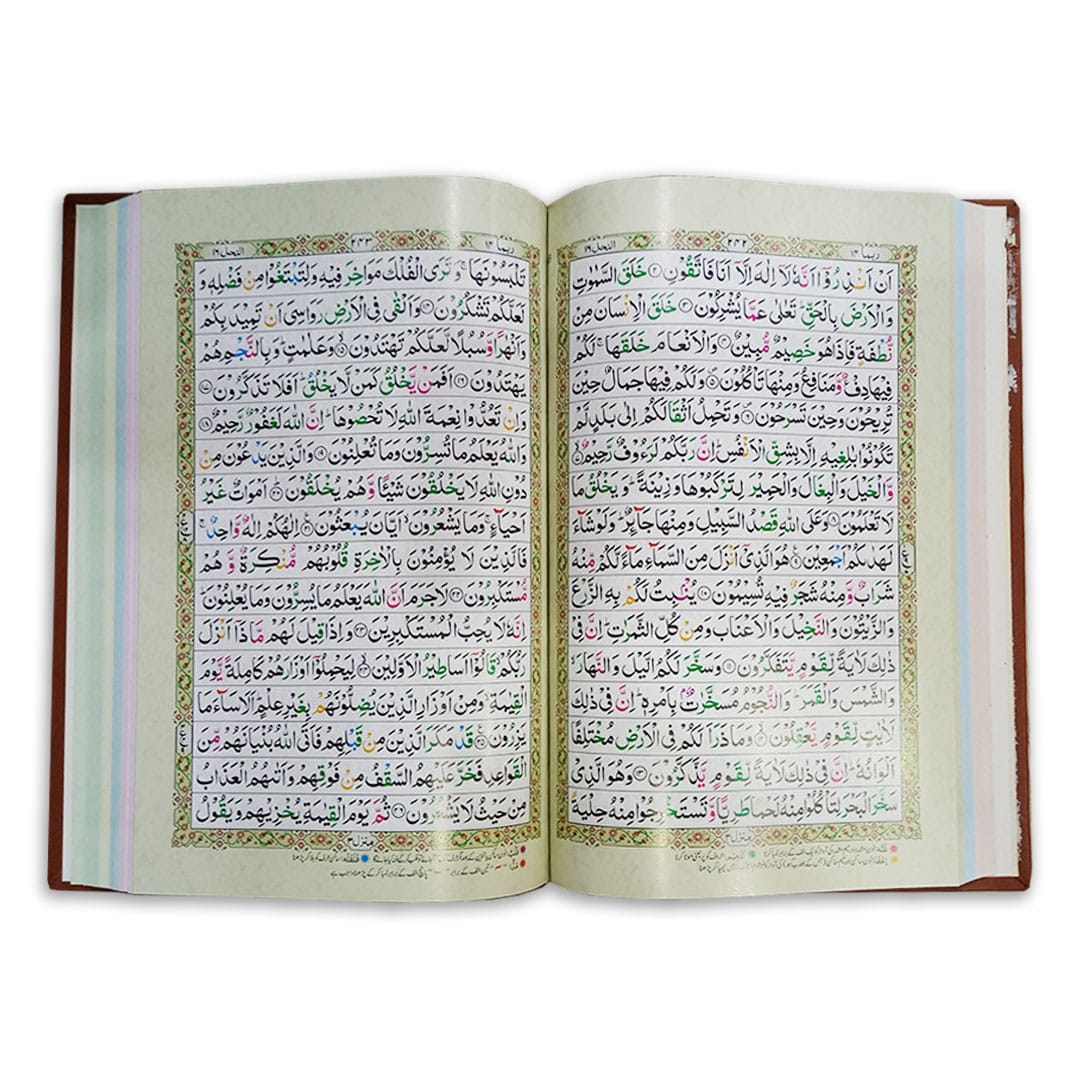 النحل ١٦
٢٤٢
ربما ١٤
اَنْ اَنْذِرُوْۤا اَنَّهٗ لَاۤ اِلٰهَ اِلَّاۤ اَنَا فَاتَّقُوْنِ ۝۲ خَلَقَ السَّمٰوٰتِ
وَالْاَرْضَ بِالْحَقِّ ؕ تَعٰلٰى عَمَّا يُشْرِكُوْنَ ۝۳ خَلَقَ الْاِنْسَانَ مِنْ
نُّطْفَةٍ فَاِذَا هُوَ خَصِيْمٌ مُّبِيْنٌ ۝۴ وَالْاَنْعَامَ خَلَقَهَا ۚ لَكُمْ
فِيْهَا دِفْءٌ وَّمَنَافِعُ وَمِنْهَا تَاْكُلُوْنَ ۝۵ وَلَكُمْ فِيْهَا جَمَالٌ حِيْنَ
تُرِيْحُوْنَ وَحِيْنَ تَسْرَحُوْنَ ۝۶ وَتَحْمِلُ اَثْقَالَكُمْ اِلٰى بَلَدٍ لَّمْ
تَكُوْنُوْا بٰلِغِيْهِ اِلَّا بِشِقِّ الْاَنْفُسِ ؕ اِنَّ رَبَّكُمْ لَرَءُوْفٌ رَّحِيْمٌ ۝۷
وَّالْخَيْلَ وَالْبِغَالَ وَالْحَمِيْرَ لِتَرْكَبُوْهَا وَزِيْنَةً ؕ وَيَخْلُقُ مَا
لَا تَعْلَمُوْنَ ۝۸ وَعَلَى اللّٰهِ قَصْدُ السَّبِيْلِ وَمِنْهَا جَآئِرٌ ؕ وَلَوْ شَآءَ
لَهَدٰىكُمْ اَجْمَعِيْنَ ۝۹ هُوَ الَّذِيْۤ اَنْزَلَ مِنَ السَّمَآءِ مَآءً لَّكُمْ مِّنْهُ
شَرَابٌ وَّمِنْهُ شَجَرٌ فِيْهِ تُسِيْمُوْنَ ۝۱۰ يُنْۢبِتُ لَكُمْ بِهِ الزَّرْعَ
وَالزَّيْتُوْنَ وَالنَّخِيْلَ وَالْاَعْنَابَ وَمِنْ كُلِّ الثَّمَرٰتِ ؕ اِنَّ فِيْ
ذٰلِكَ لَاٰيَةً لِّقَوْمٍ يَّتَفَكَّرُوْنَ ۝۱۱ وَسَخَّرَ لَكُمُ الَّيْلَ وَالنَّهَارَ ۙ
وَالشَّمْسَ وَالْقَمَرَ ؕ وَالنُّجُوْمُ مُسَخَّرٰتٌۢ بِاَمْرِهٖ ؕ اِنَّ فِيْ ذٰلِكَ
لَاٰيٰتٍ لِّقَوْمٍ يَّعْقِلُوْنَ ۝۱۲ وَمَا ذَرَاَ لَكُمْ فِى الْاَرْضِ مُخْتَلِفًا
اَلْوَانُهٗ ؕ اِنَّ فِيْ ذٰلِكَ لَاٰيَةً لِّقَوْمٍ يَّذَّكَّرُوْنَ ۝۱۳ وَهُوَ الَّذِيْ
سَخَّرَ الْبَحْرَ لِتَاْكُلُوْا مِنْهُ لَحْمًا طَرِيًّا وَّتَسْتَخْرِجُوْا مِنْهُ حِلْيَةً
منزل ۳
النحل ١٦
٢٤٣
ربما ١٤
تَلْبَسُوْنَهَا ۚ وَتَرَى الْفُلْكَ مَوَاخِرَ فِيْهِ وَلِتَبْتَغُوْا مِنْ فَضْلِهٖ وَ
لَعَلَّكُمْ تَشْكُرُوْنَ ۝۱۴ وَاَلْقٰى فِى الْاَرْضِ رَوَاسِيَ اَنْ تَمِيْدَ بِكُمْ
وَاَنْهٰرًا وَّسُبُلًا لَّعَلَّكُمْ تَهْتَدُوْنَ ۝۱۵ وَعَلٰمٰتٍ ؕ وَبِالنَّجْمِ هُمْ
يَهْتَدُوْنَ ۝۱۶ اَفَمَنْ يَّخْلُقُ كَمَنْ لَّا يَخْلُقُ ؕ اَفَلَا تَذَكَّرُوْنَ ۝۱۷
وَاِنْ تَعُدُّوْا نِعْمَةَ اللّٰهِ لَا تُحْصُوْهَا ؕ اِنَّ اللّٰهَ لَغَفُوْرٌ رَّحِيْمٌ ۝۱۸
وَاللّٰهُ يَعْلَمُ مَا تُسِرُّوْنَ وَمَا تُعْلِنُوْنَ ۝۱۹ وَالَّذِيْنَ يَدْعُوْنَ مِنْ
دُوْنِ اللّٰهِ لَا يَخْلُقُوْنَ شَيْئًا وَّهُمْ يُخْلَقُوْنَ ۝۲۰ اَمْوَاتٌ غَيْرُ
اَحْيَآءٍ ۚ وَمَا يَشْعُرُوْنَ ۙ اَيَّانَ يُبْعَثُوْنَ ۝۲۱ اِلٰهُكُمْ اِلٰهٌ وَّاحِدٌ ۚ
فَالَّذِيْنَ لَا يُؤْمِنُوْنَ بِالْاٰخِرَةِ قُلُوْبُهُمْ مُّنْكِرَةٌ وَّهُمْ
مُّسْتَكْبِرُوْنَ ۝۲۲ لَا جَرَمَ اَنَّ اللّٰهَ يَعْلَمُ مَا يُسِرُّوْنَ وَمَا يُعْلِنُوْنَ ؕ
اِنَّهٗ لَا يُحِبُّ الْمُسْتَكْبِرِيْنَ ۝۲۳ وَاِذَا قِيْلَ لَهُمْ مَّاذَاۤ اَنْزَلَ
رَبُّكُمْ ۙ قَالُوْۤا اَسَاطِيْرُ الْاَوَّلِيْنَ ۝۲۴ لِيَحْمِلُوْۤا اَوْزَارَهُمْ كَامِلَةً يَّوْمَ
الْقِيٰمَةِ ۙ وَمِنْ اَوْزَارِ الَّذِيْنَ يُضِلُّوْنَهُمْ بِغَيْرِ عِلْمٍ ؕ اَلَا سَآءَ مَا
يَزِرُوْنَ ۝۲۵ قَدْ مَكَرَ الَّذِيْنَ مِنْ قَبْلِهِمْ فَاَتَى اللّٰهُ بُنْيَانَهُمْ مِّنَ
الْقَوَاعِدِ فَخَرَّ عَلَيْهِمُ السَّقْفُ مِنْ فَوْقِهِمْ وَاَتٰىهُمُ الْعَذَابُ
مِنْ حَيْثُ لَا يَشْعُرُوْنَ ۝۲۶ ثُمَّ يَوْمَ الْقِيٰمَةِ يُخْزِيْهِمْ وَيَقُوْلُ
منزل ۳